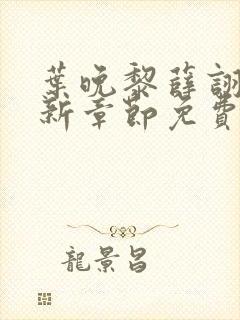 葉晚黎薛詡
新章節免費
龍景昌